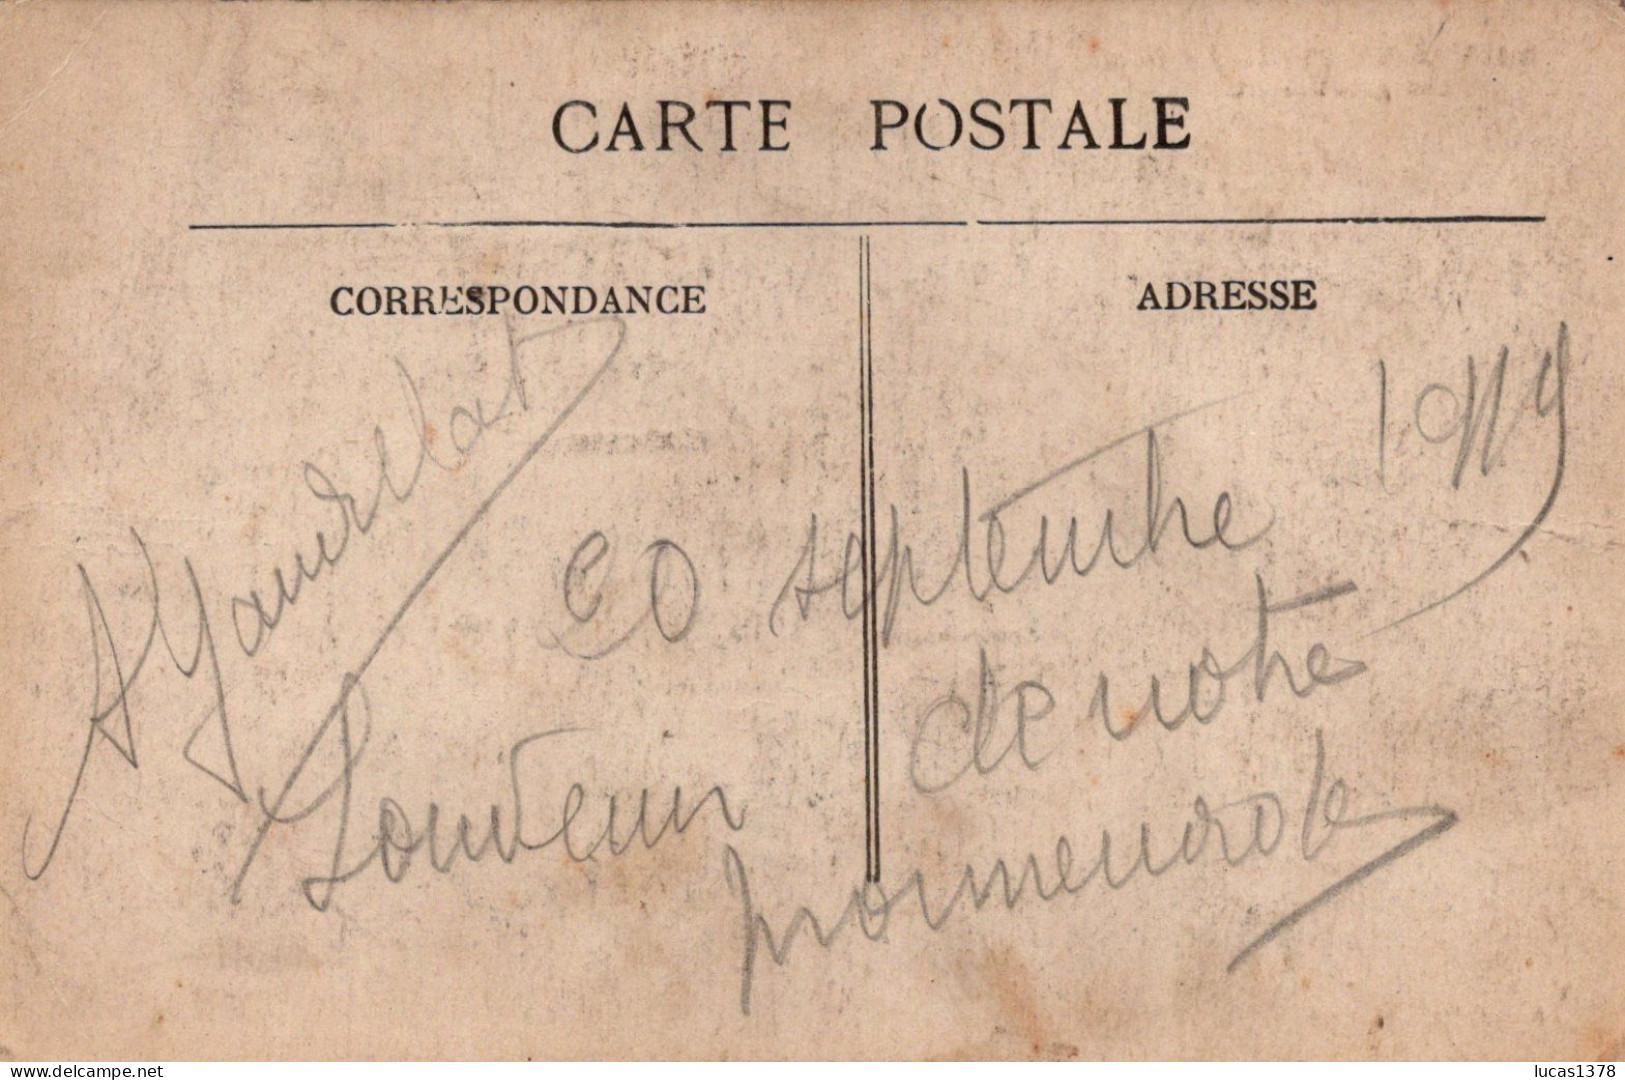 CARTE POSTALE
CORRESPONDANCE
ADRESSE
20 septembre 1919
Souvenir de notre
promenade
delcampe.net
lucas1378